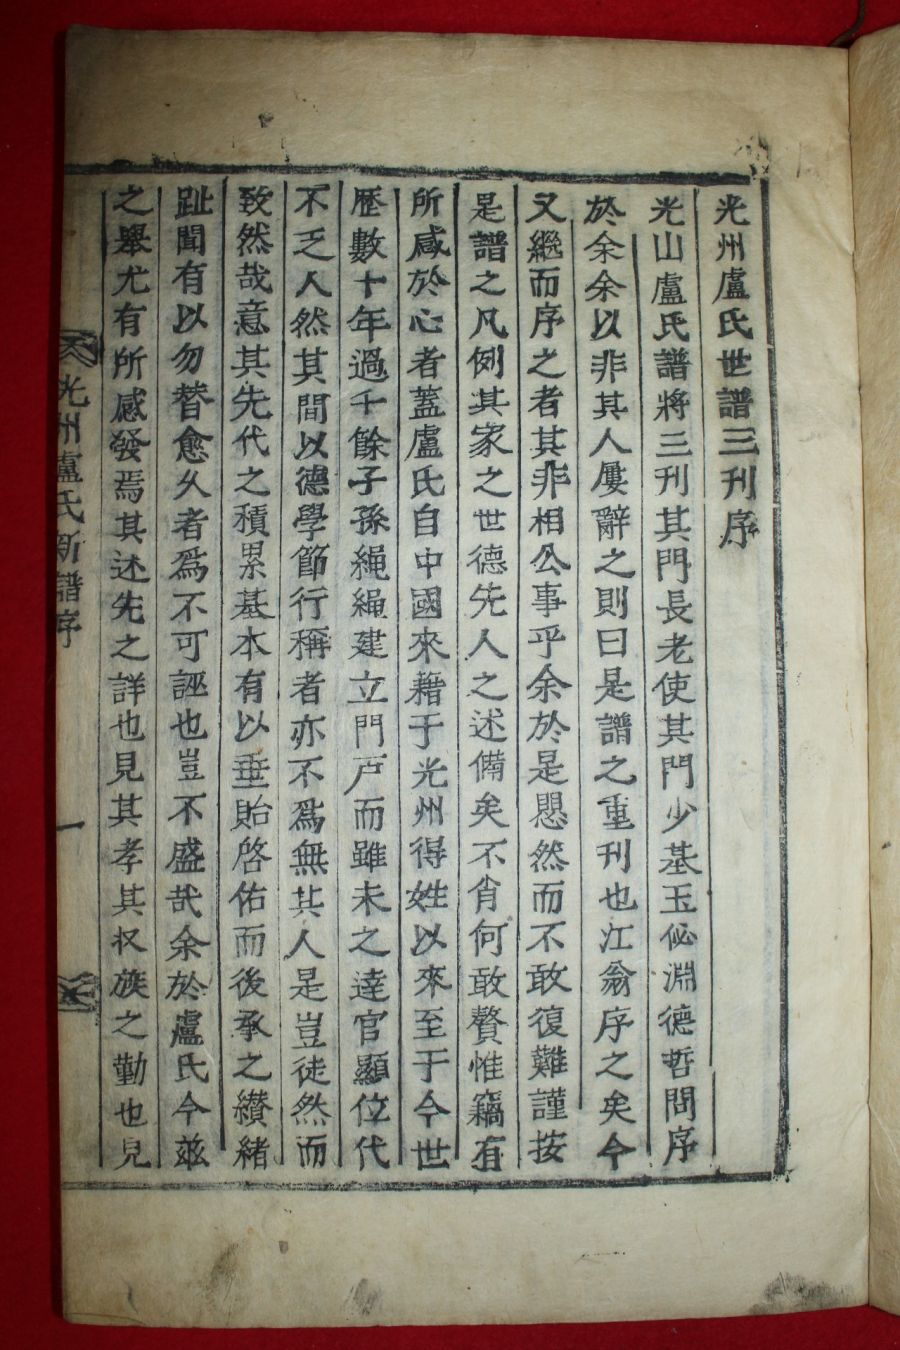 光州盧氏世譜三刊序
光山盧氏譜將三刊其門長老使其門少基玉佖淵德哲問序
於余余以非其人屢辭之則曰是譜之重刊也江翁序之矣今
又繼而序之者其非相公事乎余於是愳然而不敢復難謹按
是譜之凡例其家之世德先人之述備矣不肖何敢贅惟竊有
所感於心者蓋盧氏自中國來籍于光州得姓以來至于今世
歷數十年過千餘子孫繩繩建立門戶而雖未之達官顯位代
不乏人然其間以德學節行稱者亦不爲無其人是豈徒然而
致然哉意其先代之積累基本有以垂貽啓佑而後承之纘緖
趾聞有以勿替愈久者爲不可誣也豈不盛哉余於盧氏今玆
之擧尤有所感發焉其述先之詳也見其孝其收族之勤也見
光州盧氏新譜序
一